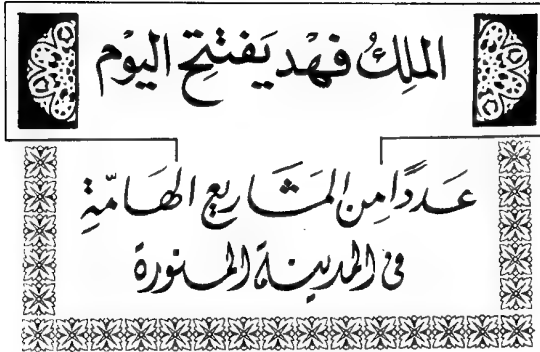 الملكُ فهْد يَفتتِح اليوْم
عَددًا مِن المَشَاريع الهَامّةِ
فى المدينة المنورة